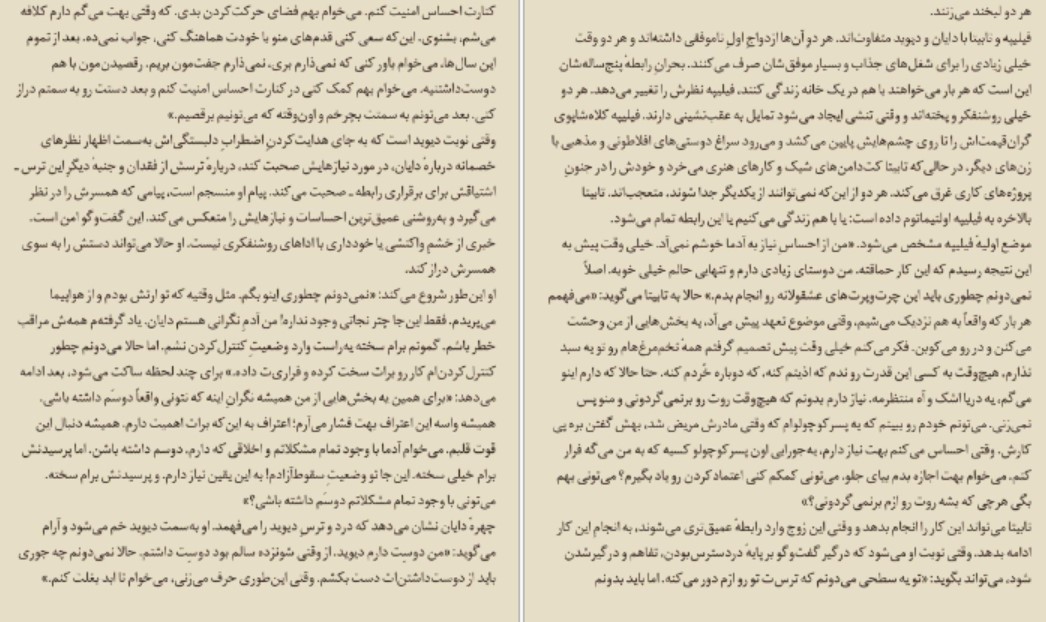 هر دو لبخند می‌زنند.
فیلیپه و تابیتا با دایان و دیوید متفاوت‌اند. هر دو آن‌ها ازدواج اولِ ناموفقی داشته‌اند و هر دو وقت
خیلی زیادی را برای شغل‌های جذاب و بسیار موفق‌شان صرف می‌کنند. بحرانِ رابطهٔ پنج‌ساله‌شان
این است که هر بار می‌خواهند با هم در یک خانه زندگی کنند، فیلیپه نظرش را تغییر می‌دهد. هر دو
خیلی روشنفکر و پخته‌اند و وقتی تنشی ایجاد می‌شود تمایل به عقب‌نشینی دارند. فیلیپه کلاه‌شاپوی
گران‌قیمت‌اش را تا روی چشم‌هایش پایین می‌کشد و می‌رود سراغ دوستی‌های افلاطونی و مذهبی با
زن‌های دیگر. در حالی‌که تابیتا کت‌دامن‌های شیک و کارهای هنری می‌خرد و خودش را در جنونِ
پروژه‌های کاری غرق می‌کند. هر دو از این‌که نمی‌توانند از یکدیگر جدا شوند، متعجب‌اند. تابیتا
بالاخره به فیلیپه اولتیماتوم داده است: یا با هم زندگی می‌کنیم یا این رابطه تمام می‌شود.
موضع اولیهٔ فیلیپه مشخص می‌شود. «من از احساس نیاز به آدما خوشم نمی‌آد. خیلی وقت پیش به
این نتیجه رسیدم که این کار حماقته. من دوستای زیادی دارم و تنهایی حالم خیلی خوبه. اصلاً
نمی‌دونم چطوری باید این چرت‌وپرت‌های عشقولانه رو انجام بدم.» حالا به تابیتا می‌گوید: «می‌فهمم
هر بار که واقعاً به هم نزدیک می‌شیم، وقتی موضوع تعهد پیش می‌آد، یه بخش‌هایی از من وحشت
می‌کنن و در رو می‌کوبن. فکر می‌کنم خیلی وقت پیش تصمیم گرفتم همهٔ تخم‌مرغ‌هام رو تو یه سبد
نذارم، هیچ‌وقت به کسی این قدرت رو ندم که اذیتم کنه، که دوباره خُردم کنه. حتا حالا که دارم اینو
می‌گم، یه دریا اشک و آه منتظرمه. نیاز دارم بدونم که هیچ‌وقت روت رو برنمی‌گردونی و منو پس
نمی‌زنی. می‌تونم خودم رو ببینم که یه پسر کوچولوام که وقتی مادرش مریض شد، بهش گفتن بره پی
کارش. وقتی احساس می‌کنم بهت نیاز دارم، یه‌جورایی اون پسر کوچولو کسیه که به من می‌گه فرار
کنم. می‌خوام بهت اجازه بدم بیای جلو. می‌تونی کمکم کنی اعتماد کردن رو یاد بگیرم؟ می‌تونی بهم
بگی هرچی که بشه روت رو ازم برنمی‌گردونی؟»
تابیتا می‌تواند این کار را انجام بدهد و وقتی این زوج وارد رابطهٔ عمیق‌تری می‌شوند، به انجام این کار
ادامه بدهد. وقتی نوبت او می‌شود که درگیر گفت‌وگو بر پایهٔ دردسترس‌بودن، تفاهم و درگیرشدن
شود، می‌تواند بگوید: «تو یه سطحی می‌دونم که ترس‌ت تو رو ازم دور می‌کنه. اما باید بدونم
کنارت احساس امنیت کنم. می‌خوام بهم فضای حرکت کردن بدی. که وقتی بهت می‌گم دارم کلافه
می‌شم، بشنوی. این‌که سعی کنی قدم‌های منو با خودت هماهنگ کنی، جواب نمی‌ده. بعد از تموم
این سال‌ها، می‌خوام باور کنی که نمی‌ذارم بری، نمی‌ذارم جفت‌مون بریم. رقصیدن‌مون با هم
دوست‌داشتنیه. می‌خوام بهم کمک کنی در کنارت احساس امنیت کنم و بعد دستت رو به سمتم دراز
کنی. بعد می‌تونم به سمتت بچرخم و اون‌وقته که می‌تونیم برقصیم.»
وقتی نوبت دیوید است که به جای هدایت‌کردن اضطرابِ دلبستگی‌اش به‌سمت اظهار نظرهای
خصمانه دربارهٔ دایان، در مورد نیازهایش صحبت کند، دربارهٔ ترسش از فقدان و جنبهٔ دیگرِ این ترس ـ
اشتیاقش برای برقراری رابطه ـ صحبت می‌کند. پیام او منسجم است، پیامی که همسرش را در نظر
می‌گیرد و به‌روشنی عمیق‌ترین احساسات و نیازهایش را منعکس می‌کند. این گفت‌وگو امن است.
خبری از خشمِ واکنشی یا خودداری با اداهای روشنفکری نیست. او حالا می‌تواند دستش را به سوی
همسرش دراز کند.
او این‌طور شروع می‌کند: «نمی‌دونم چطوری اینو بگم. مثل وقتیه که تو ارتش بودم و از هواپیما
می‌پریدم. فقط این‌جا چتر نجاتی وجود نداره! من آدم نگرانی هستم دایان. یاد گرفته‌م همه‌ش مراقب
خطر باشم. گمونم برام سخته یه‌راست وارد وضعیتِ کنترل کردن نشم. اما حالا می‌دونم چطور
کنترل کردن‌ام کار رو برات سخت کرده و فراری‌ت داده.» برای چند لحظه ساکت می‌شود، بعد ادامه
می‌دهد: «برای همین یه بخش‌هایی از من همیشه نگرانِ اینه که نتونی واقعاً دوستم داشته باشی.
همیشه واسه این اعتراف بهت فشار می‌آرم؛ اعتراف به این‌که برات اهمیت دارم. همیشه دنبال این
قوت قلبم. می‌خوام آدما با وجود تمام مشکلاتم و اخلاقی که دارم، دوسم داشته باشن. اما پرسیدنش
برام خیلی سخته. این‌جا تو وضعیتِ سقوط‌آزادم! به این یقین نیاز دارم، و پرسیدنش برام سخته.
می‌تونی با وجود تمام مشکلاتم دوستم داشته باشی؟»
چهرهٔ دایان نشان می‌دهد که درد و ترس دیوید را می‌فهمد. او به‌سمت دیوید خم می‌شود و آرام
می‌گوید: «من دوستِ دارم دیوید. از وقتی شونزده سالم بود دوست داشتم. حالا نمی‌دونم چه جوری
باید از دوست‌داشتن‌ات دست بکشم. وقتی این‌طوری حرف می‌زنی، می‌خوام تا ابد بغلت کنم.»